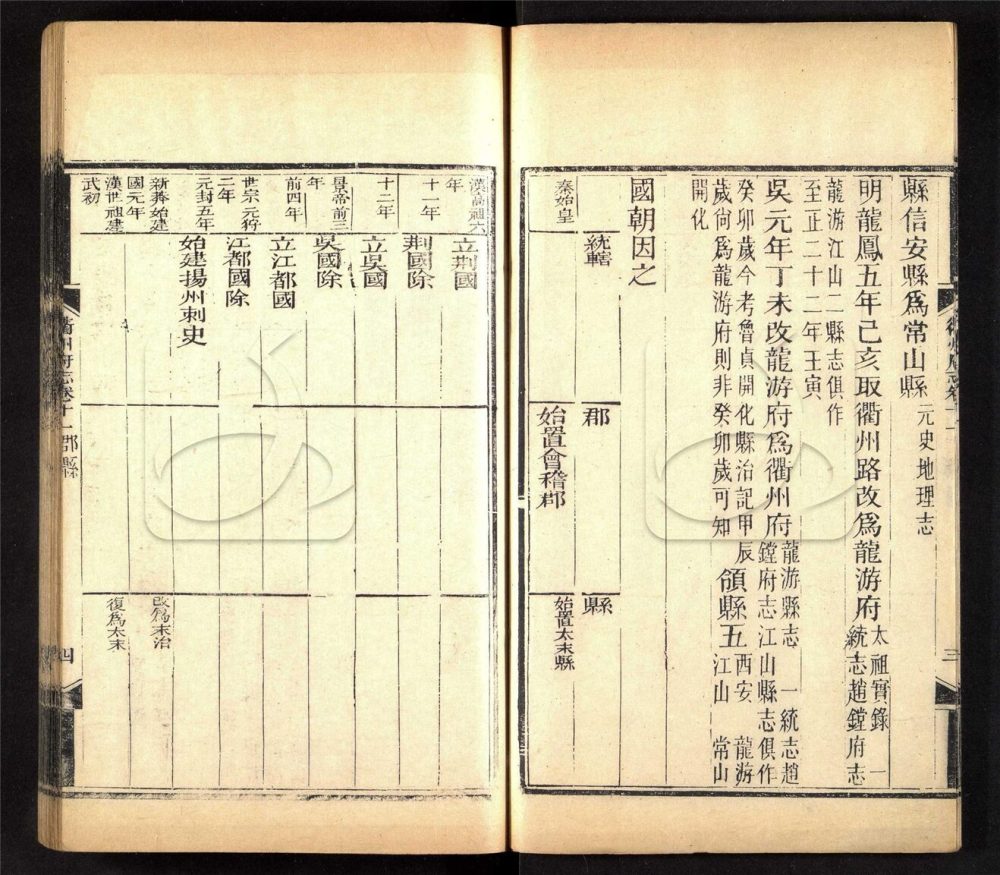 縣信安縣爲常山縣 元史地理志
明龍鳳五年己亥取衢州路改爲龍游府 太祖實錄 一
統志趙鏜府志
龍游江山二縣志俱作
至正二十二年壬寅
吳元年丁未改龍游府爲衢州府 龍游縣志 一統志趙
鏜府志江山縣志俱作
癸卯歲今考魯貞開化縣治記甲辰
歲尙爲龍游府則非癸卯歲可知
領縣五 西安 龍游
江山 常山
開化
國朝因之
統轄 郡 縣
秦始皇 始置會稽郡 始置太末縣
三
漢高祖六年 立荆國
十一年 荆國除
十二年 立吳國
景帝前三年 吳國除
前四年 立江都國
世宗元狩二年 江都國除
元封五年 始建揚州刺史
新莽始建國元年 改爲末治
漢世祖建武初 復爲太末
衢州府志卷十一 郡縣 四